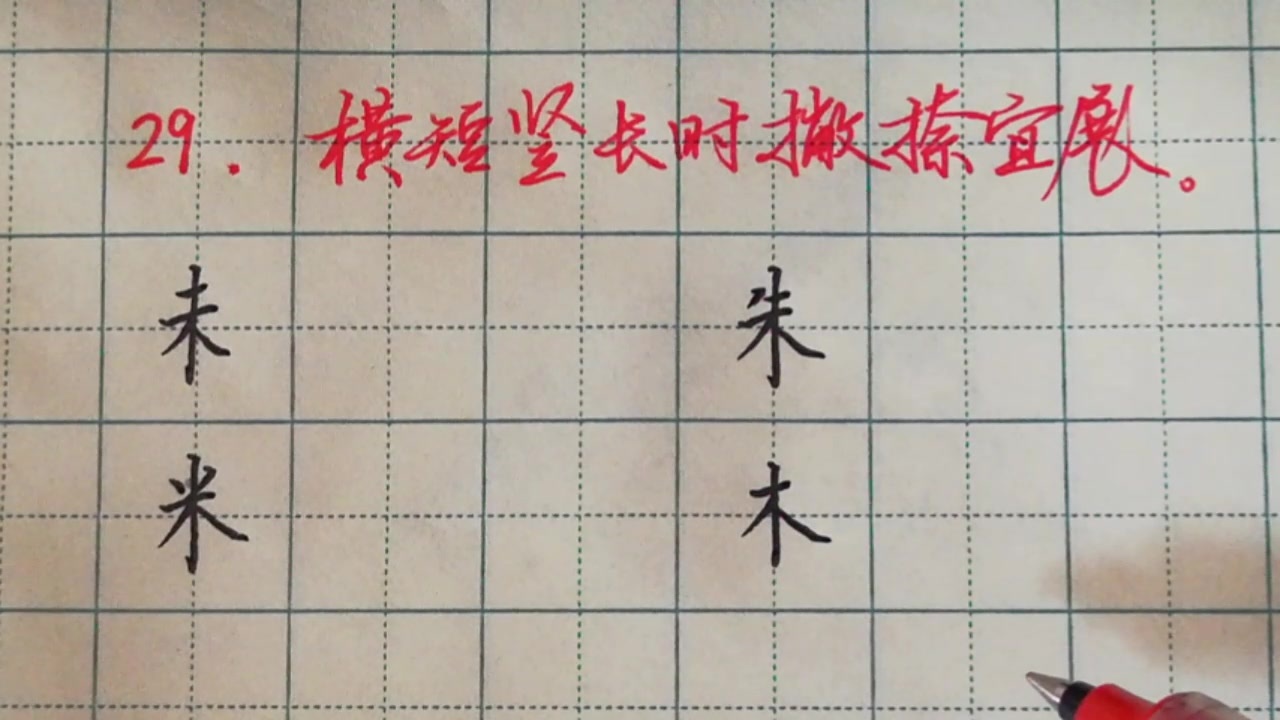 29. 横短竖长时撇捺宜展。
未 朱
米 木